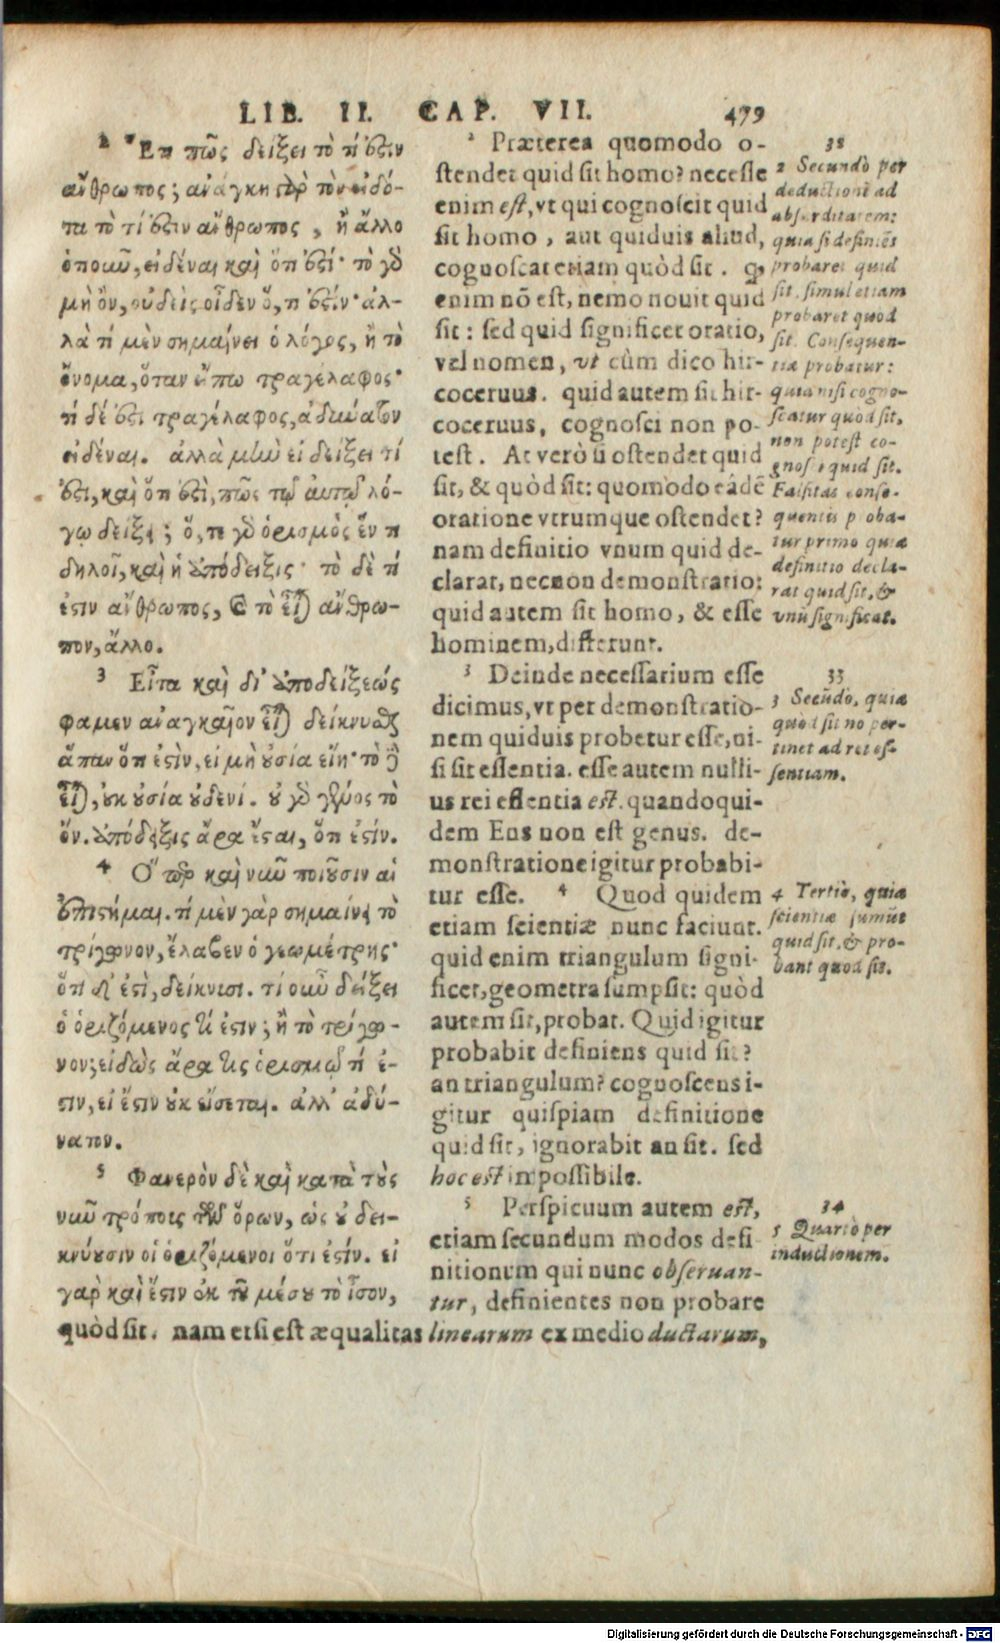 LIB. II. CAP. VII. 479
2 Ἔτι πῶς δείξει τὸ τί ἐστιν
ἄνθρωπος; ἀνάγκη γὰρ τὸν εἰδό-
τα τὸ τί ἐστιν ἄνθρωπος, ἢ ἄλλο
ὁτιοῦν, εἰδέναι καὶ ὅτι ἐστί· τὸ γὰρ
μὴ ὂν, οὐδεὶς οἶδεν ὅ, τι ἐστίν· ἀλ-
λὰ τί μὲν σημαίνει ὁ λόγος, ἢ τὸ
ὄνομα, ὅταν εἴπω τραγέλαφος·
τί δέ ἐστι τραγέλαφος, ἀδύνατον
εἰδέναι. ἀλλὰ μὴν εἰ δείξει τί
ἐστι, καὶ ὅτι ἐστὶ, πῶς τῷ αὐτῷ λό-
γῳ δείξει; ὅ, τε γὰρ ὁρισμὸς ἕν τι
δηλοῖ, καὶ ἡ ἀπόδειξις· τὸ δὲ τί
ἐστιν ἄνθρωπος, καὶ τὸ εἶναι ἄνθρω-
πον, ἄλλο.
3 Εἶτα καὶ δι' ἀποδείξεώς
φαμεν ἀναγκαῖον εἶναι δείκνυσθαι
ἅπαν ὅτι ἐστὶν, εἰ μὴ οὐσία εἴη· τὸ δὲ
εἶναι, οὐκ οὐσία οὐδενί. οὐ γὰρ γένος τὸ
ὄν. ἀπόδειξις ἄρα ἔσται, ὅτι ἐστίν.
4 Ὅπερ καὶ νῦν ποιοῦσιν αἱ
ἐπιστῆμαι. τί μὲν γὰρ σημαίνει τὸ
τρίγωνον, ἔλαβεν ὁ γεωμέτρης·
ὅτι δ' ἐστὶ, δείκνυσι. τί οὖν δείξει
ὁ ὁριζόμενος τί ἐστιν; ἢ τὸ τρίγω-
νον; εἰδὼς ἄρα τις ὁρισμῷ τί ἐ-
στιν, εἰ ἔστιν οὐκ εἴσεται. ἀλλ' ἀδύ-
νατον.
5 Φανερὸν δὲ καὶ κατὰ τοὺς
νῦν τρόπους τῶν ὅρων, ὡς οὐ δει-
κνύουσιν οἱ ὁριζόμενοι ὅτι ἐστίν. εἰ
γὰρ καὶ ἔστιν ἐκ τοῦ μέσου τὸ ἴσον,
2 Præterea quomodo o-
stendet quid sit homo? necesse
enim est, vt qui cognoscit quid
sit homo, aut quiduis aliud,
cognoscat etiam quòd sit. qđ
enim nō est, nemo nouit quid
sit: sed quid significet oratio,
vel nomen, vt cùm dico hir-
coceruus. quid autem sit hir-
coceruus, cognosci non po-
test. At verò si ostendet quid
sit, & quòd sit: quomodo eádē
oratione vtrumque ostendet?
nam definitio vnum quid de-
clarat, necnon demonstratio:
quid autem sit homo, & esse
hominem, differunt.
3 Deinde necessarium esse
dicimus, vt per demonstratio-
nem quiduis probetur esse, ni-
si sit essentia. esse autem nulli-
us rei essentia est. quandoqui-
dem Ens non est genus. de-
monstratione igitur probabi-
tur esse. 4 Quod quidem
etiam scientiæ nunc faciunt.
quid enim triangulum signi-
ficet, geometra sumpsit: quòd
autem sit, probat. Quid igitur
probabit definiens quid sit?
an triangulum? cognoscens i-
gitur quispiam definitione
quid sit, ignorabit an sit. sed
hoc est impossibile.
5 Perspicuum autem est,
etiam secundum modos defi
nitionum qui nunc obseruan-
tur, definientes non probare
quòd sit. nam etsi est æqualitas linearum ex medio ductarum,
32
2 Secundò per
deductionē ad
absurditatem:
quia si definiēs
probaret quid
sit, simul etiam
probaret quòd
sit. Consequen-
tia probatur:
quia nisi cogno-
scatur quòd sit,
non potest co-
gnosci quid sit.
Falsitas conse-
quentis proba-
tur primo quia
definitio decla-
rat quid sit, &
vnū significat.
33
3 Secūdò, quia
quòd sit nō per-
tinet ad rei es-
sentiam.
4 Tertiò, quia
scientiæ sumūt
quid sit, & pro-
bant quòd sit.
34
5 Quartò per
inductionem.
Digitalisierung gefördert durch die Deutsche Forschungsgemeinschaft - DFG